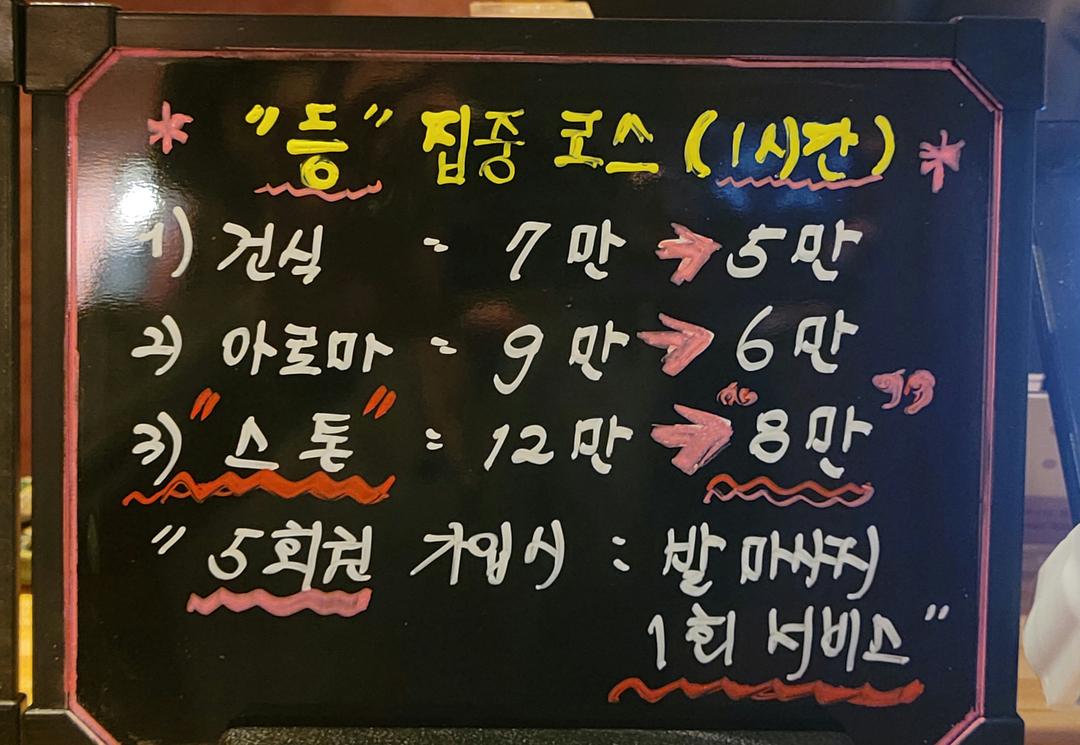 * "등" 집중 코스 (1시간) *
1) 건식 = 7만 → 5만
2) 아로마 = 9만 → 6만
3) "스톤" = 12만 → "8만"
"5회권 가입시 : 발 마사지
1회 서비스"